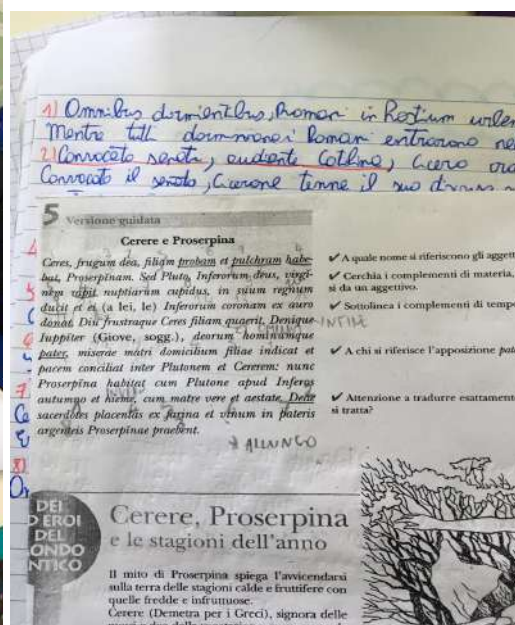 1) Omnibus dormientibus, Romani in
Mentre tutti dormivano i Romani entrarono
2) Convocato senatu, audiente Catilina, Cicero
Convocato il senato, Cicerone tenne il suo
5 Versione guidata
Cerere e Proserpina
Ceres, frugum dea, filiam probam et pulchram habe-
bat, Proserpinam. Sed Pluto, Inferorum deus, virgi-
nem rapit nuptiarum cupidus, in suum regnum
ducit et ei (a lei, le) Inferorum coronam ex auro
donat. Diu frustraque Ceres filiam quaerit. Denique
Iuppiter (Giove, sogg.), deorum hominumque
pater, miserae matri domicilium filiae indicat et
pacem conciliat inter Plutonem et Cererem: nunc
Proserpina habitat cum Plutone apud Inferos
autumno et hieme, cum matre vere et aestate. Deae
sacerdotes placentas ex farina et vinum in pateris
argenteis Proserpinae praebent.
✔ A quale nome si riferiscono gli aggett
✔ Cerchia i complementi di materia,
si da un aggettivo.
✔ Sottolinea i complementi di tempo
✔ A chi si riferisce l'apposizione pat
✔ Attenzione a tradurre esattamente
si tratta?
DEI
D EROI
DEL
ONDO
NTICO
Cerere, Proserpina
e le stagioni dell'anno
Il mito di Proserpina spiega l'avvicendarsi
sulla terra delle stagioni calde e fruttifere con
quelle fredde e infruttuose.
Cerere (Demetra per i Greci), signora delle